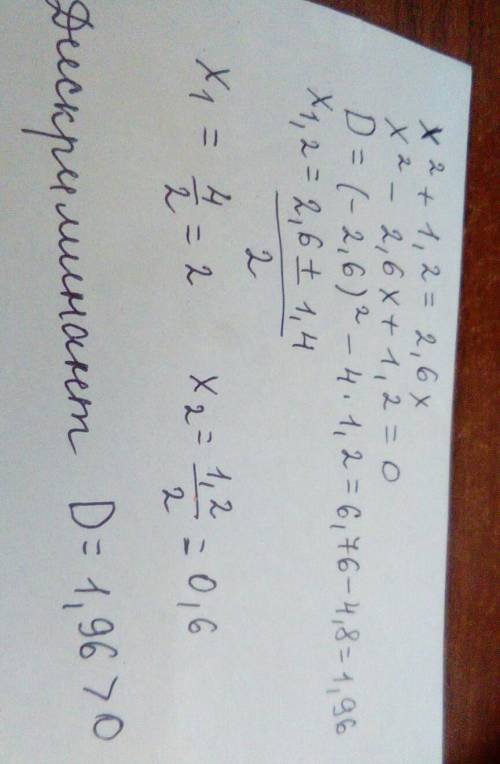 x² + 1,2 = 2,6x
x² - 2,6x + 1,2 = 0
D = (-2,6)² - 4·1,2 = 6,76 - 4,8 = 1,96
x₁,₂ = (2,6 ± 1,4)/2
x₁ = 4/2 = 2 x₂ = 1,2/2 = 0,6
Дискриминант D = 1,96 > 0